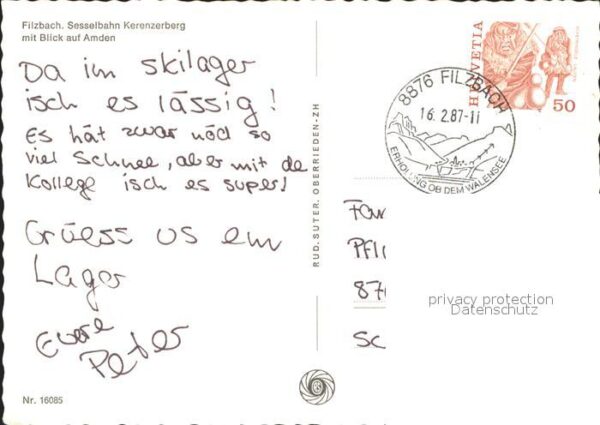 Filzbach. Sesselbahn Kerenzerberg
mit Blick auf Amden
Da im skilager
isch es lässig!
Es hät zwar nöd so
viel Schnee, aber mit de
Kollege isch es super!
Grüess us em
Lager
Euere
Peter
Nr. 16085
RUD. SUTER, OBERRIEDEN-ZH
HELVETIA
50
8876 FILZBACH
16.2.87-11
ERHOLUNG OB DEM WALENSEE
Fam
Pfl
87
Sc
privacy protection
Datenschutz